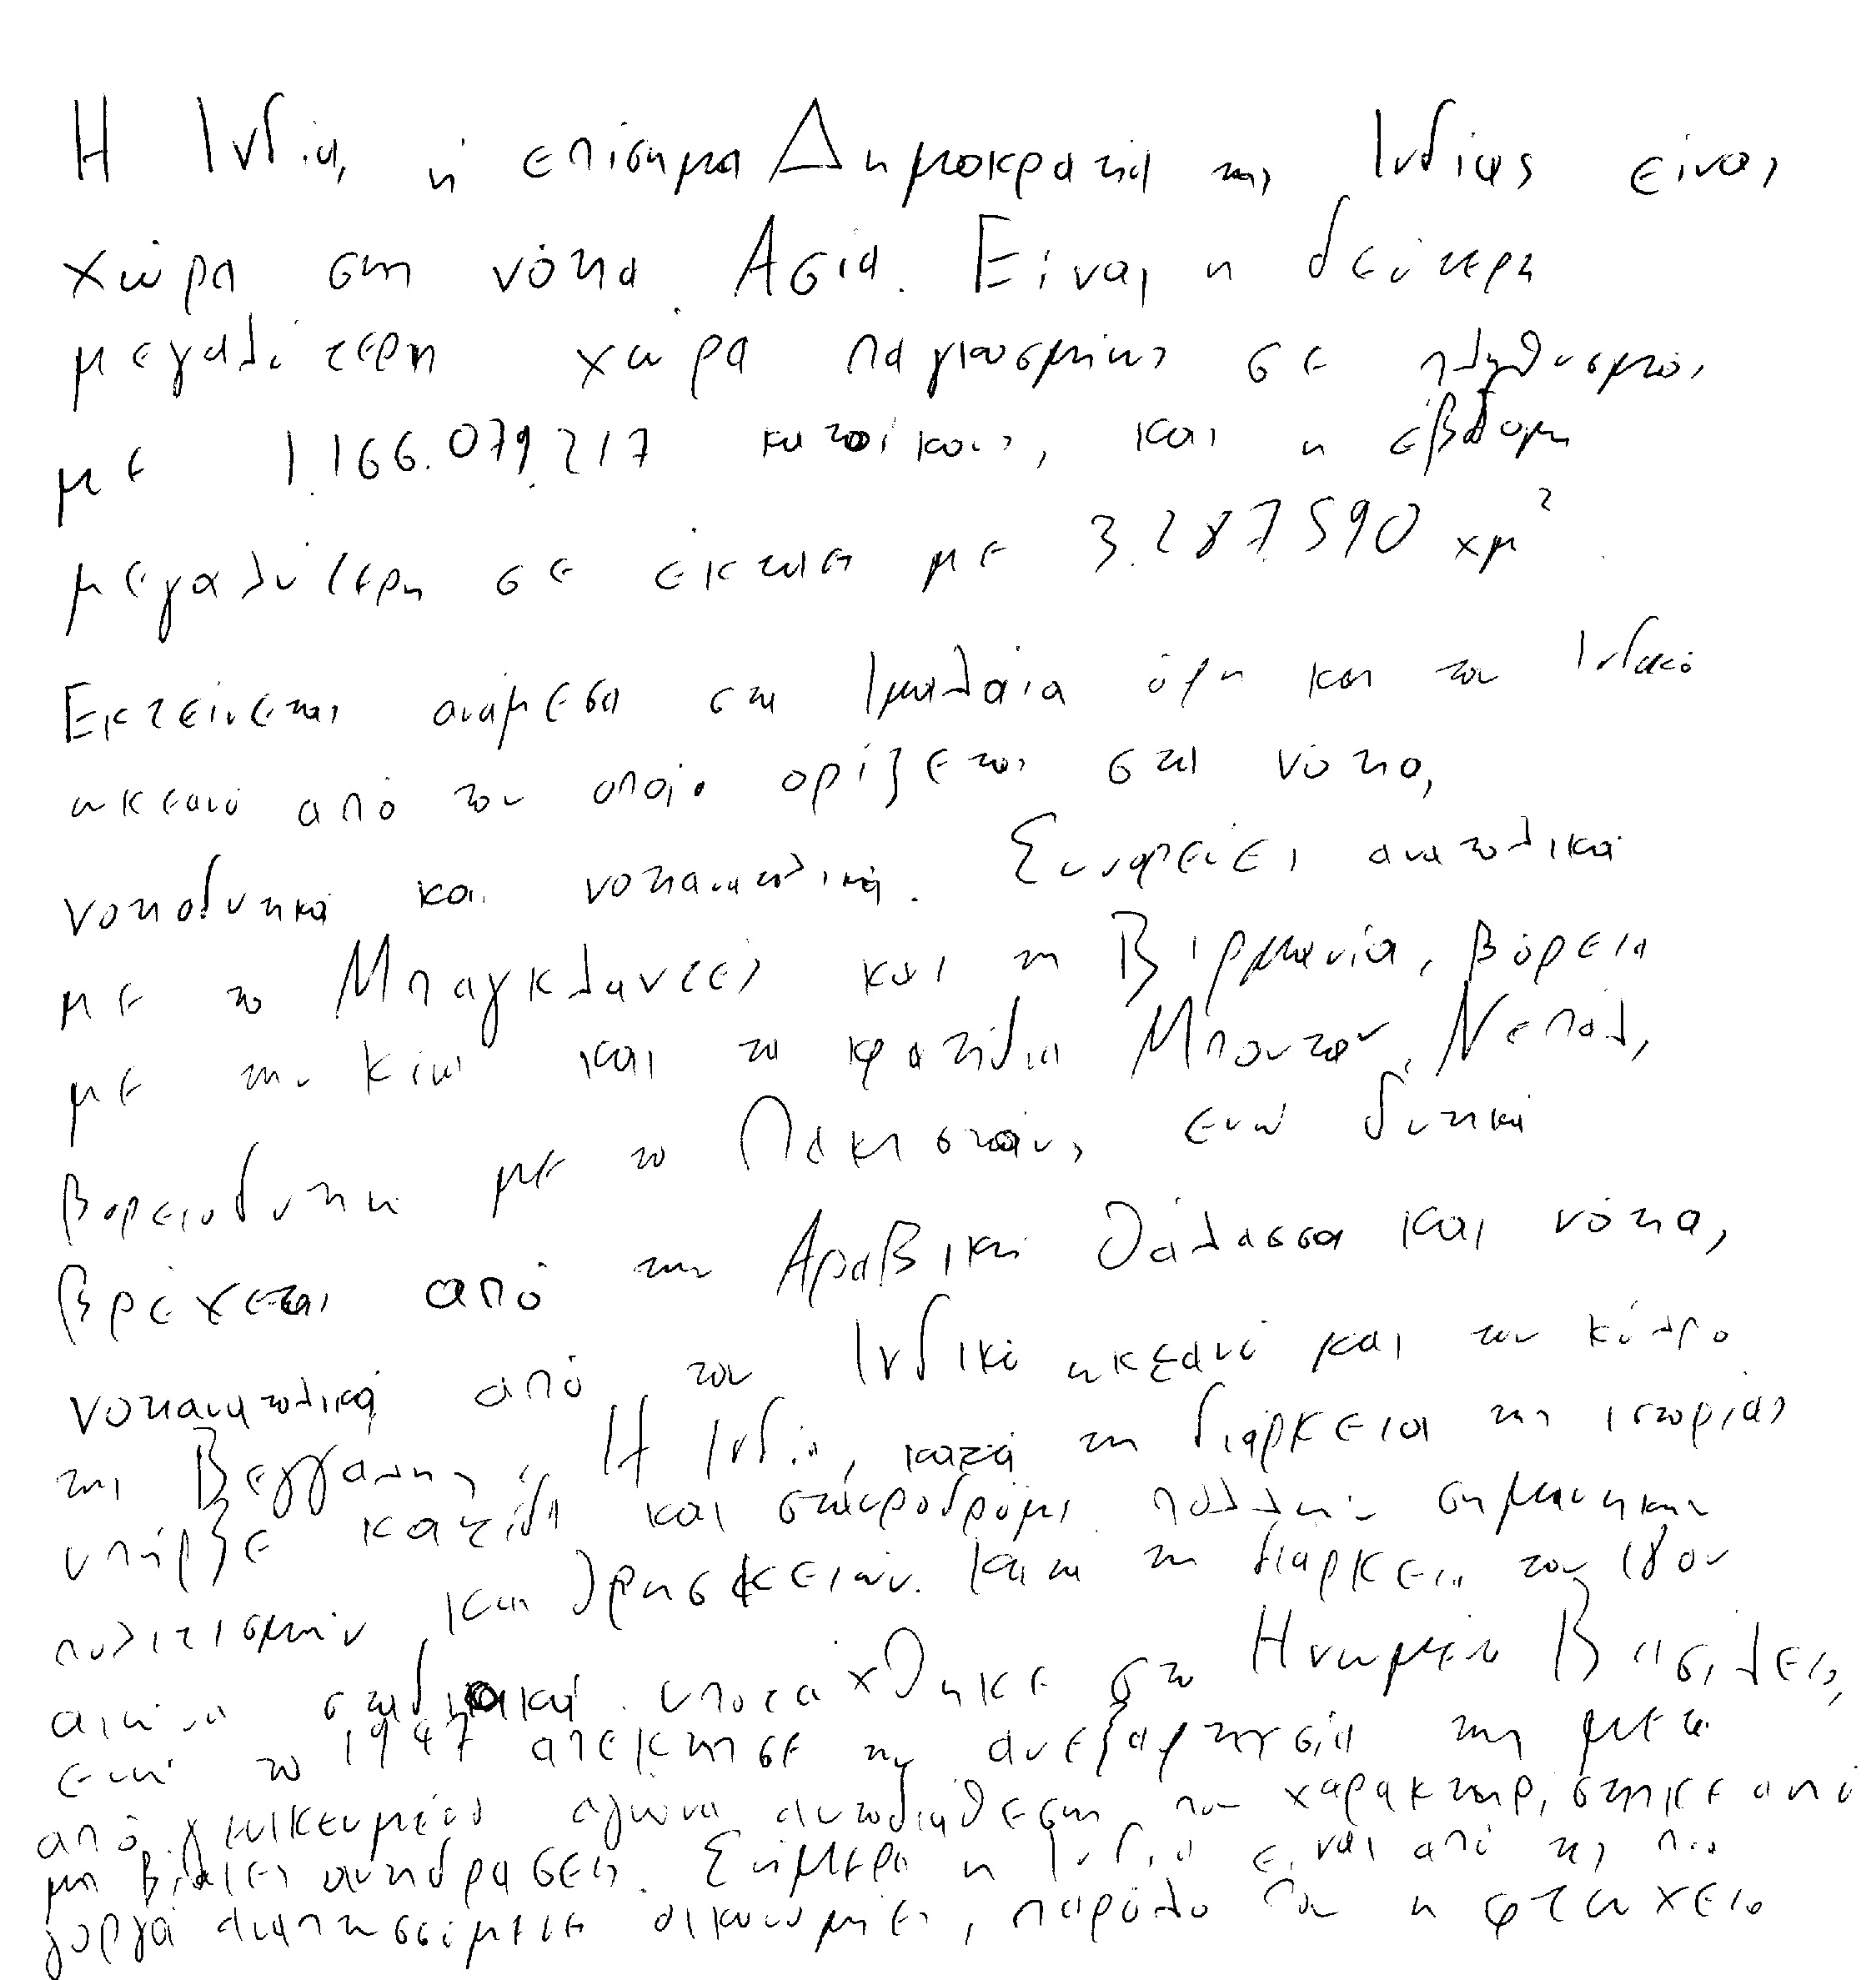 Η Ινδία, ή επίσημα Δημοκρατία της Ινδίας είναι
χώρα στη νότια Ασία. Είναι η δεύτερη
μεγαλύτερη χώρα παγκοσμίως σε πληθυσμό,
με 1.166.079.217 κατοίκους, και η έβδομη
μεγαλύτερη σε έκταση με 3.287.590 χμ²
Εκτείνεται ανάμεσα στα Ιμαλάια όρη και τον Ινδικό
ωκεανό από τον οποίο ορίζεται στα νότια,
νοτιοδυτικά και νοτιοανατολικά. Συνορεύει ανατολικά
με το Μπαγκλαντές και τη Βιρμανία, βόρεια
με την Κίνα και τα κρατίδια Μπουτάν, Νεπάλ,
βορειοδυτικά με το Πακιστάν, ενώ δυτικά
βρέχεται από την Αραβική θάλασσα και νότια,
νοτιοανατολικά από τον Ινδικό ωκεανό και τον κόλπο
της Βεγγάλης. Η Ινδία, κατά τη διάρκεια της ιστορίας
υπήρξε κοιτίδα και σταυροδρόμι πολλών σημαντικών
πολιτισμών και θρησκειών. Κατά τη διάρκεια του 18ου
αιώνα σταδιακά υποτάχθηκε στο Ηνωμένο Βασίλειο,
ενώ το 1947 απέκτησε την ανεξαρτησία της μετά
από γενικευμένο αγώνα αυτοδιάθεσης που χαρακτηρίστηκε από
μη βίαιες αντιδράσεις. Σήμερα η Ινδία είναι από τις πιο
γοργά αναπτυσσόμενες οικονομίες, παρόλο που η φτώχεια